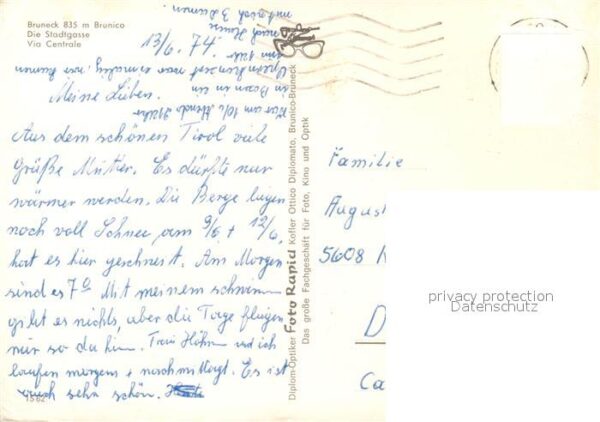 Bruneck 835 m Brunico
Die Stadtgasse
Via Centrale
13/6. 74.
Meine Lieben.
Aus dem schönen Tirol viele
Grüße Mutter. Es dürfte nur
wärmer werden. Die Berge liegen
noch voll Schnee, am 9/6. + 12/6.
hat es hier geschneit. Am Morgen
sind es 7° Mit meinem schwimm
gibt es nichts, aber die Tage fliegen
nur so dahin. Frau Höhn und ich
laufen morgens + nachm. Es ist
auch sehr schön.
1562
Diplom-Optiker Foto Rapid Kofler Ottico Diplomato, Brunico-Bruneck
Das große Fachgeschäft für Foto, Kino und Optik
Familie
August
5608
D
Ca
privacy protection
Datenschutz